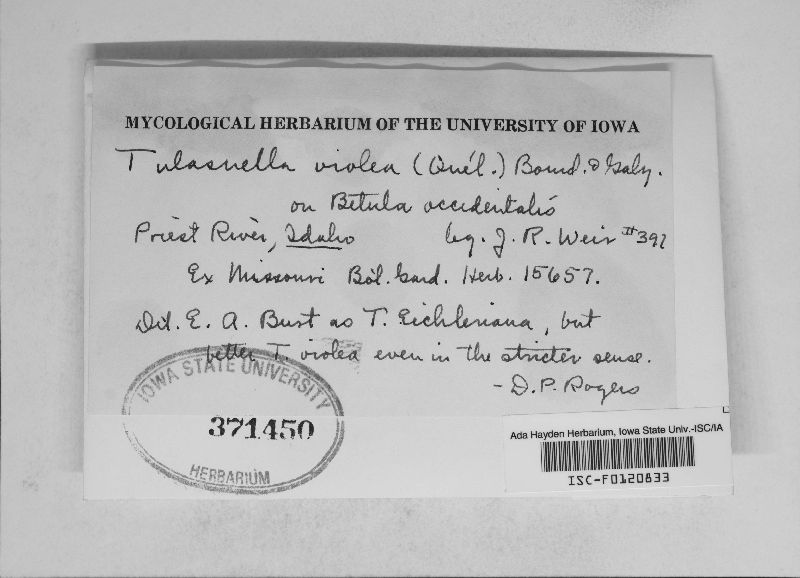 MYCOLOGICAL HERBARIUM OF THE UNIVERSITY OF IOWA
Tulasnella violea (Quél.) Bourd. & Galz.
on Betula occidentalis
Priest River, Idaho leg. J. R. Weir #391
Ex Missouri Bot. Gard. Herb. 15657.
Det. E. A. Burt as T. Eichleriana, but
better T. violea even in the stricter sense.
- D. P. Rogers
IOWA STATE UNIVERSITY
371450
HERBARIUM
Ada Hayden Herbarium, Iowa State Univ.-ISC/IA
ISC-F0120833